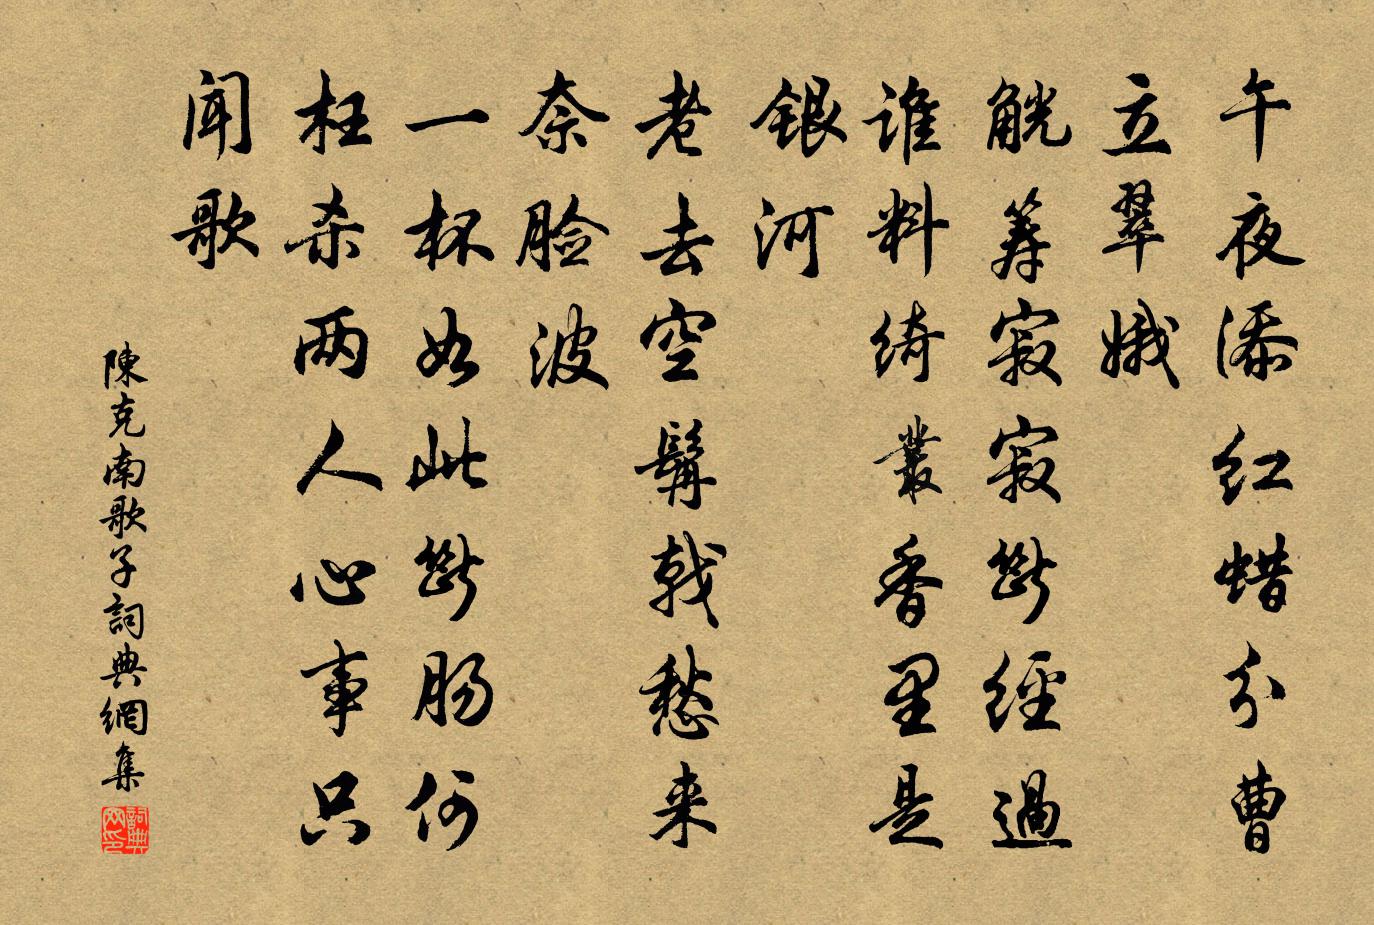 午夜添红蜡分曹
立翠娥
觥筹寂寂断經過
谁料绮叢香里是
银河
老去空髯戟愁来
奈脸波
一杯如此断肠何
枉杀两人心事只
闻歌
陳克南歌子詞典網集
詞典网印